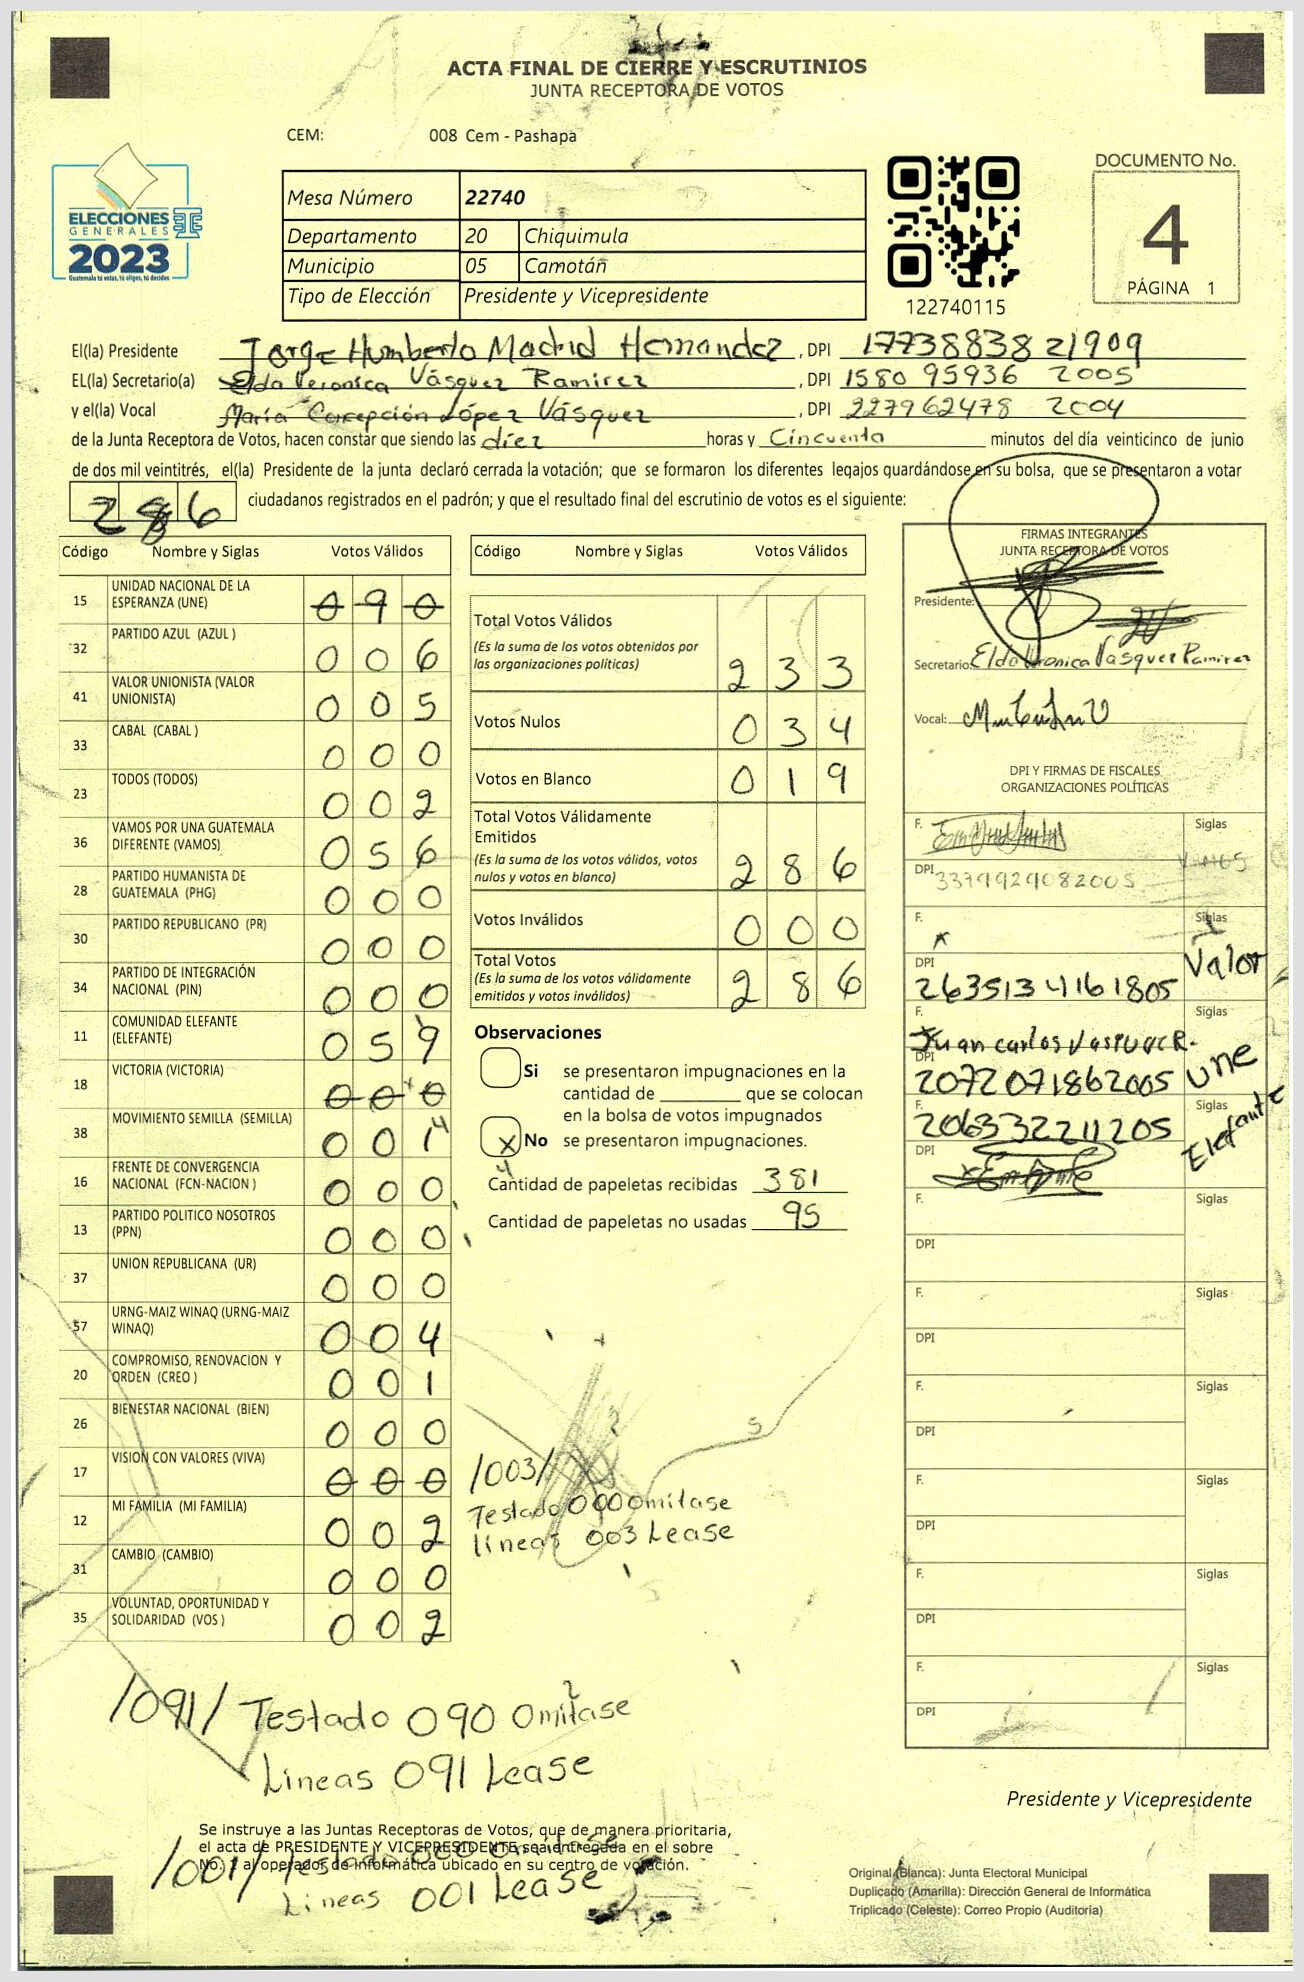 ACTA FINAL DE CIERRE Y ESCRUTINIOS
JUNTA RECEPTORA DE VOTOS
CEM: 008 Cem - Pashapa
ELECCIONES
GENERALES
2023
Guatemala tú votas, tú eliges, tú decides
Mesa Número 22740
Departamento 20 Chiquimula
Municipio 05 Camotán
Tipo de Elección Presidente y Vicepresidente
122740115
DOCUMENTO No.
4
PÁGINA 1
El(la) Presidente Jorge Humberto Madrid Hernandez, DPI 1773883821909
EL(la) Secretario(a) Elda Veronica Vásquez Ramirez, DPI 1580 95936 2005
y el(la) Vocal María Concepción López Vásquez, DPI 227962478 2004
de la Junta Receptora de Votos, hacen constar que siendo las diez horas y Cincuenta minutos del día veinticinco de junio
de dos mil veintitrés, el(la) Presidente de la junta declaró cerrada la votación; que se formaron los diferentes legajos guardándose en su bolsa, que se presentaron a votar
286 ciudadanos registrados en el padrón; y que el resultado final del escrutinio de votos es el siguiente:
Código Nombre y Siglas Votos Válidos
15 UNIDAD NACIONAL DE LA ESPERANZA (UNE) 090
32 PARTIDO AZUL (AZUL ) 006
41 VALOR UNIONISTA (VALOR UNIONISTA) 005
33 CABAL (CABAL ) 000
23 TODOS (TODOS) 002
36 VAMOS POR UNA GUATEMALA DIFERENTE (VAMOS) 056
28 PARTIDO HUMANISTA DE GUATEMALA (PHG) 000
30 PARTIDO REPUBLICANO (PR) 000
34 PARTIDO DE INTEGRACIÓN NACIONAL (PIN) 000
11 COMUNIDAD ELEFANTE (ELEFANTE) 059
18 VICTORIA (VICTORIA) 000
38 MOVIMIENTO SEMILLA (SEMILLA) 001
16 FRENTE DE CONVERGENCIA NACIONAL (FCN-NACION ) 000
13 PARTIDO POLITICO NOSOTROS (PPN) 000
37 UNION REPUBLICANA (UR) 000
57 URNG-MAIZ WINAQ (URNG-MAIZ WINAQ) 004
20 COMPROMISO, RENOVACION Y ORDEN (CREO ) 001
26 BIENESTAR NACIONAL (BIEN) 000
17 VISION CON VALORES (VIVA) 000
12 MI FAMILIA (MI FAMILIA) 002
31 CAMBIO (CAMBIO) 000
35 VOLUNTAD, OPORTUNIDAD Y SOLIDARIDAD (VOS ) 002
Código Nombre y Siglas Votos Válidos
Total Votos Válidos 233
(Es la suma de los votos obtenidos por
las organizaciones políticas)
Votos Nulos 034
Votos en Blanco 019
Total Votos Válidamente
Emitidos 286
(Es la suma de los votos válidos, votos
nulos y votos en blanco)
Votos Inválidos 000
Total Votos 286
(Es la suma de los votos válidamente
emitidos y votos inválidos)
Observaciones
Si se presentaron impugnaciones en la
cantidad de ________ que se colocan
en la bolsa de votos impugnados
x No se presentaron impugnaciones.
Cantidad de papeletas recibidas 381
Cantidad de papeletas no usadas 95
/003/
Testado 000 Omitase
lineas 003 Lease
/091/ Testado 090 Omitase
Lineas 091 Lease
Se instruye a las Juntas Receptoras de Votos, que de manera prioritaria,
el acta de PRESIDENTE Y VICEPRESIDENTE sea entregada en el sobre
No. 2 al operador de informática ubicado en su centro de votación.
/001/ Testado 000 Omitase
Lineas 001 Lease
FIRMAS INTEGRANTES
JUNTA RECEPTORA DE VOTOS
Presidente:
Secretario: Elda Veronica Vasquez Ramirez
Vocal:
DPI Y FIRMAS DE FISCALES
ORGANIZACIONES POLÍTICAS
F. Siglas
DPI 3379929082005 VAMOS
F. Siglas
DPI Valor
2635134161805
F. Siglas
Juan carlos Vasquez R.
DPI
2072071862005 une
F. Siglas
206332211205 Elefante
DPI
F. Siglas
DPI
F. Siglas
DPI
F. Siglas
DPI
F. Siglas
DPI
F. Siglas
DPI
F. Siglas
DPI
Presidente y Vicepresidente
Original (Blanca): Junta Electoral Municipal
Duplicado (Amarilla): Dirección General de Informática
Triplicado (Celeste): Correo Propio (Auditoría)